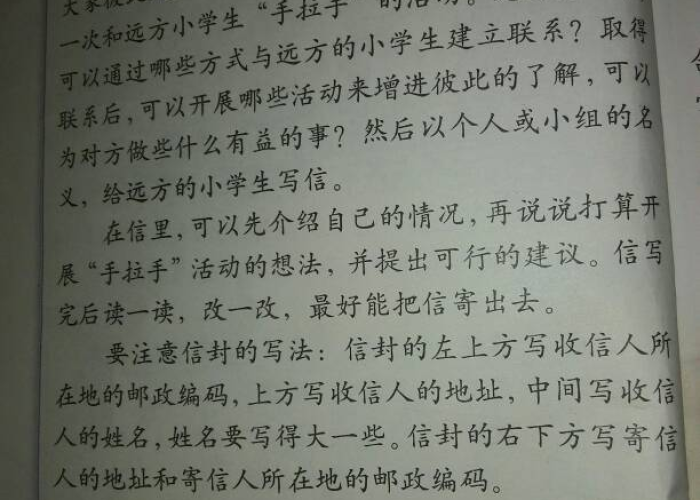 一次和远方小学生“手拉手”的活动。
可以通过哪些方式与远方的小学生建立联系？取得
联系后，可以开展哪些活动来增进彼此的了解，可以
为对方做些什么有益的事？然后以个人或小组的名
义，给远方的小学生写信。
在信里，可以先介绍自己的情况，再说说打算开
展“手拉手”活动的想法，并提出可行的建议。信写
完后读一读，改一改，最好能把信寄出去。
要注意信封的写法：信封的左上方写收信人所
在地的邮政编码，上方写收信人的地址，中间写收信
人的姓名，姓名要写得大一些。信封的右下方写寄信
人的地址和寄信人所在地的邮政编码。